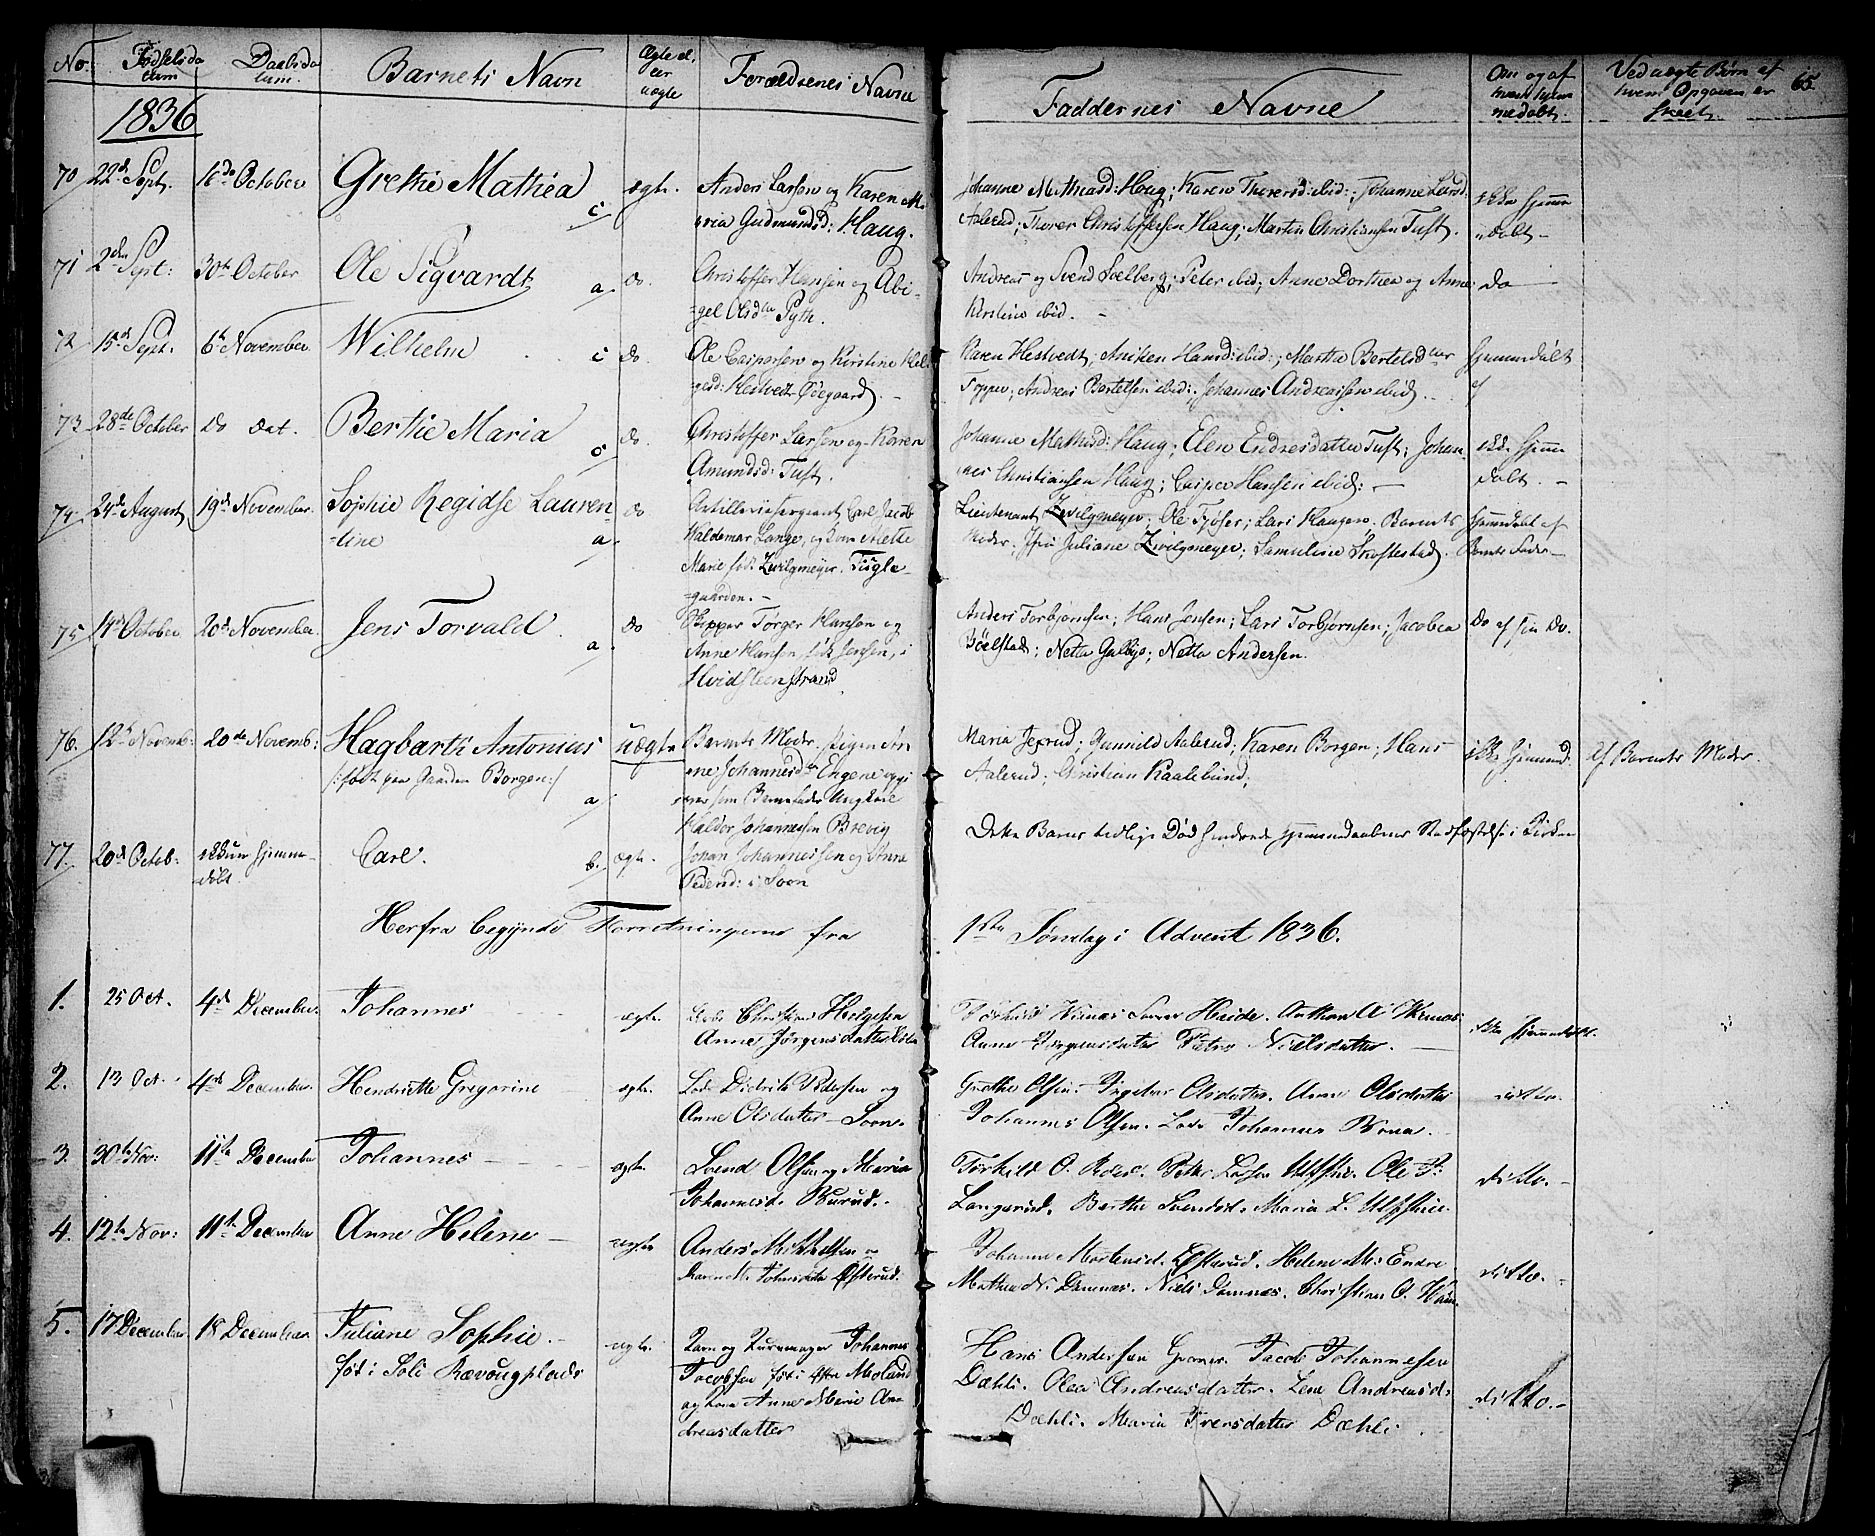 No. Fødselsda Daabsda Barnets Navn Ægte el. Forældrenes Navne Faddernes Navne Om og af Ved uægte Børn af 65
tum tum. ler hvem hjem hvem Opgaven er
uægte medøbt. skeet.
1836
70 22de Sept. 16de October Grethe Mathea c ægte. Anders Larsen og Karen Ma
ria Gudmundsd: Haug.
Johanne Mathiasd: Haug; Karen Thoresd: ibid:; Johanne Larsd.
Aalerud; Thorer Christoffersen Haug; Martin Christiansen Tuft.
ikke hjemme
døbt
71 2den Sept: 30te October Ole Sigvardt a. do. Christoffer Hansen og Abi-
gel Olsdtr Pyth.
Andreas og Svend Soelberg; Peter ibid; Anne Dorthea og Anne
Kirstine ibid.
do
72 15de Sept. 6te November Wilhelm c do Ole Caspersen og Kirstine Hel-
gesd: Hestvedt Ødegaard.
Karen Hestvedt; Aniken Hansd: ibid:; Martha Bertelsdatter
Topper; Andreas Bertelsen ibid:. Johannes Andreassen ibid.
hjemmedøbt
af
73 28de October do dat. Berthe Maria c do. Christoffer Larsen og Karen
Amundsd: Tuft.
Johanne Mathisd: Haug; Elen Endresdatter Tuft; Johan-
nes Christiansen Haug; Casper Hansen ibid:.
ikke hjemme
døbt.
74 24de August 19de November. Sophie Regidse Lauren-
tine a. do Artilleriesergeant Carl Jacob
Waldemar Lange, og Kone Alette
Marie født Zwilgmeyer. Tugle-
gaarden.
Lieutenant Zwilgmeyer; Ole Tjøser; Lars Haugen. Barnets
Moder; Jfr: Juliane Zwilgmeyer; Samuline Skoftestad.
hjemmedøbt af
Barnets Fader
75 14de October 20de November. Jens Torvald a. do Skipper Tørger Hansen og
Anne Hansen, født Jensen, i
Hvidsteenstrand
Anders Torbjørnsen; Hans Jensen; Lars Torbjørnsen; Jacobea
Bøelstad; Netta Galbye; Netta Andersen.
do af sin do.
76. 12te Novemb: 20de Novemb: Hagbarth Antonius
/: født paa Gaarden Borgen :/ a/ Uægte Barnets Moder. Pigen An
ne Johannesdtr Engene opgi
ver som Barnefader Ungkarl
Haldor Johannessen Brevig
Maria Jexrud; Gunnild Aalerud; Karen Borgen; Hans
Aalerud; Christian Kaalelund;
ikke hjemmed. Af Barnets Moder.
77. 20de Octob: ikkun hjemme-
døbt. Carl. b. ægte. Johan Johannessen og Anne
Pedersd: i Soon
Dette Barns tidlige Død hindrede hjemmedaabens Stadfæstelse i Kirken
Herfra begynde Forretningerne fra 1ste Søndag i Advent 1836.
1. 25 Oct. 4de December. Johannes ægte. Christian Helgesen
Anne Jørgensdatter
Anne Jørgensdatter Petra Nielsdatter.
ikke hjemmedøbt.
2. 13 Oct. 4de December. Hendriette Gregorine ægte. Lods Didrik Pedersen og
Anne Olsdatter Soon.
Grethe Olsen. Ingebor Olsdatter. Anne Olsdatter
Johannes Olsen. Lods Johannes
ditto.
3. 30te Nov: 11te December Johannes ægte. Svend Olsen og Maria
Johannesd. Burud.
Torkild O. Peder Larsen Ulfshie. Ole P:
Langerud. Berthe Svendsd. Maria L. Ulfshie.
ditto.
4. 12te Nov: 11te December Anne Helene ægte Anders Mikkelsen og
Johnsdatter Østerud.
Johanne Mortensd. Østerud. Helene M: Endre
Mathea N. Damnæs. Niels Damnæs. Christian O.
ditto.
5. 17 December. 18 December Juliane Sophie.
føt i Soli Rævougplads ægte. Johannes
Jacobsen føt i Moland
og Kone Anne Marie An
dreasdatter
Hans Andersen Jacob Johannesen
Dæhli. Olea Andreasdatter. Lene Andreasd.
Dæhli. Maria Iversdatter Dæhli.
ditto.